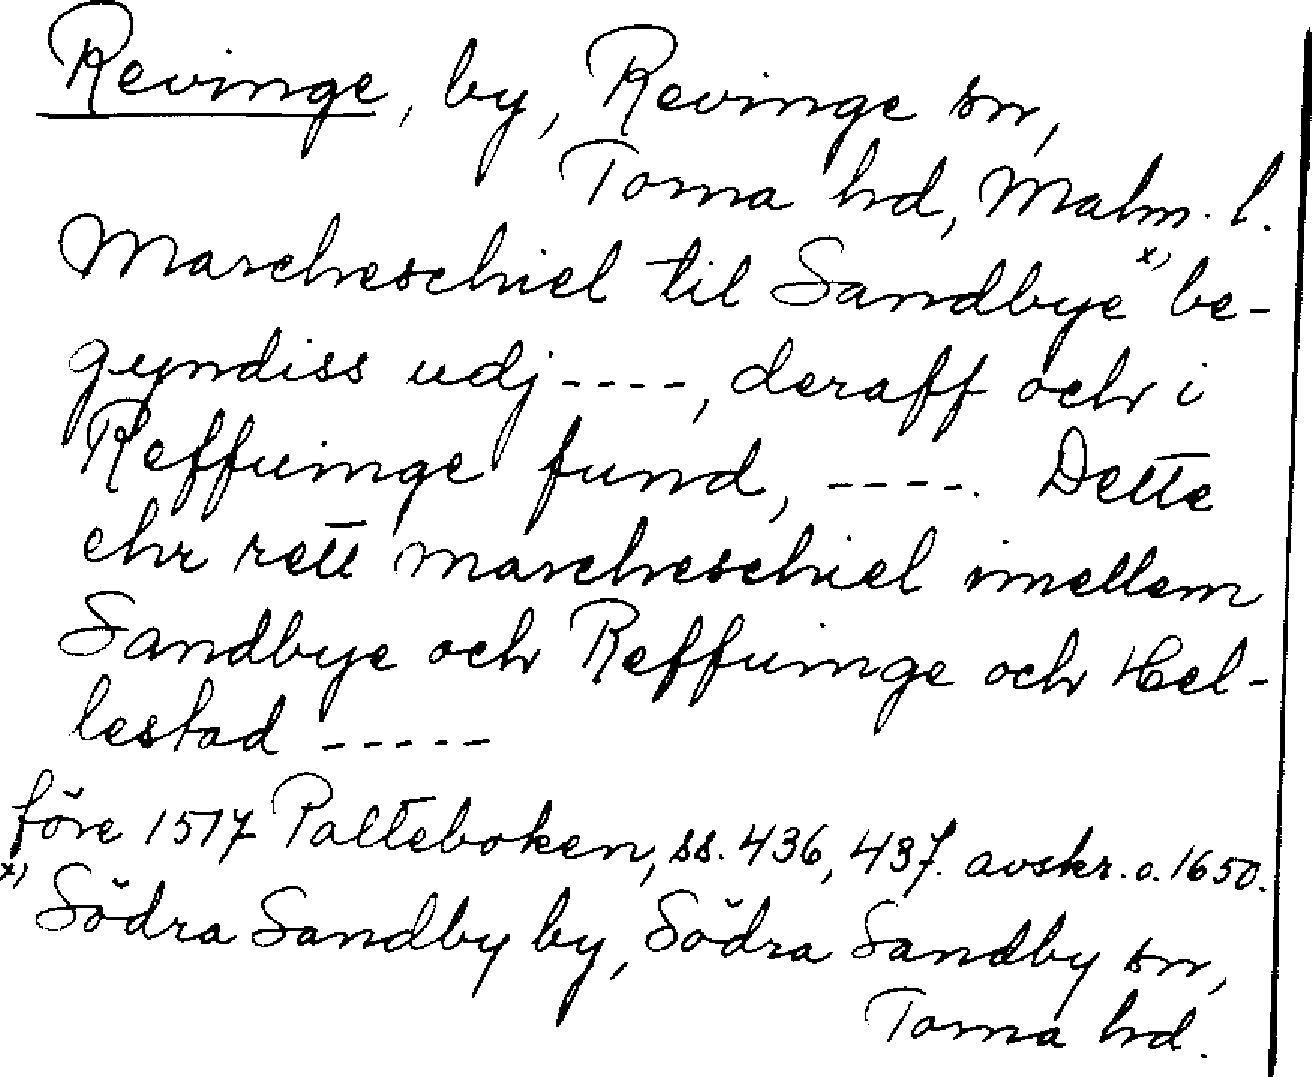 Revinge, by, Revinge sn,
Torna hd, Malm. l.
Marcheschiel til Sandbye x) be-
gyndiss udj ----, deraff och i
Reffuinge fund, ----. Dette
ehr rett marcheschiel imellem
Sandbye och Reffuinge och Hel-
lestad -----
före 1517 Palteboken, ss. 436, 437. avskr. c. 1650.
x) Södra Sandby by, Södra Sandby sn,
Torna hd.